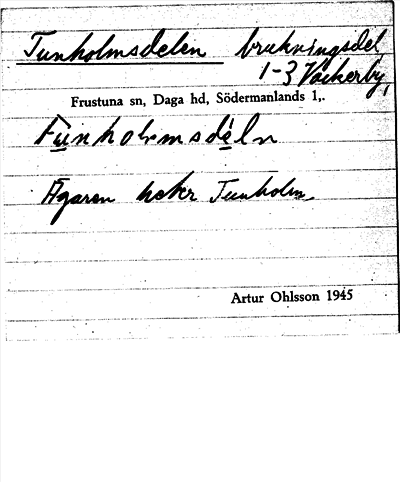 Tunholmsdelen brukningsdel
1-3 Väckerby,
Frustuna sn, Daga hd, Södermanlands l,.
Tunholmsdeln
Ägaren heter Tunholm
Artur Ohlsson 1945